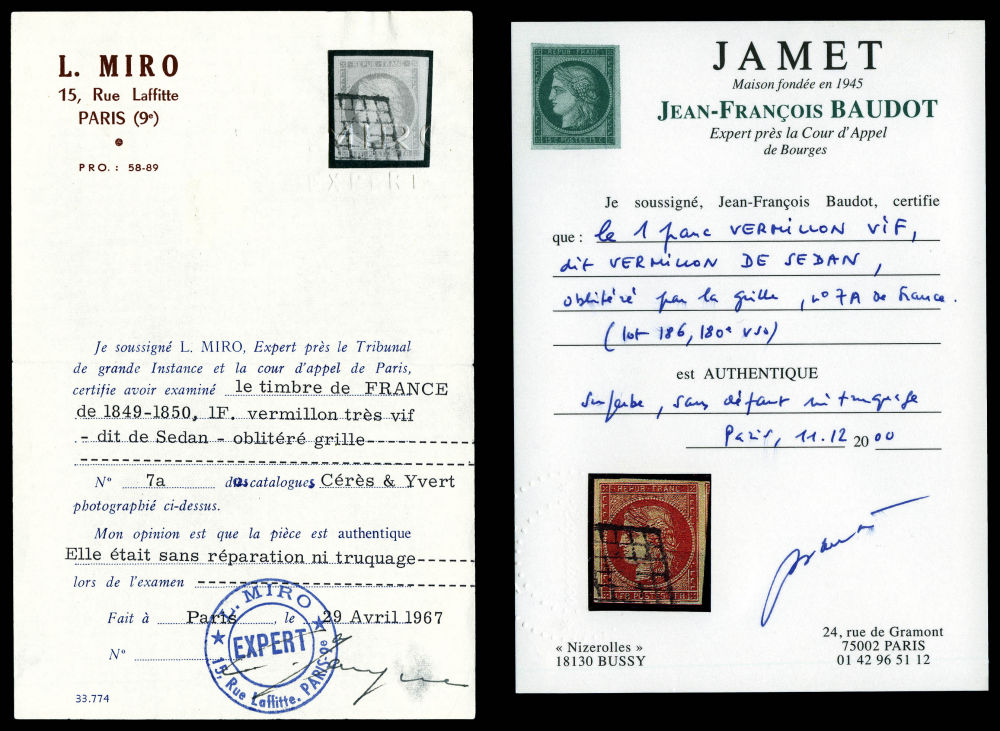 L. MIRO
15, Rue Laffitte
PARIS (9e)
PRO. : 58-89
REPUB. FRANC.
MIRO
EXPERT
Je soussigné L. MIRO, Expert près le Tribunal
de grande Instance et la cour d'appel de Paris,
certifie avoir examiné le timbre de FRANCE
de 1849-1850, 1F. vermillon très vif
- dit de Sedan - oblitéré grille
N° 7a des catalogues Cérès & Yvert
photographié ci-dessus.
Mon opinion est que la pièce est authentique
Elle était sans réparation ni truquage
lors de l'examen
Fait à Paris, le 29 Avril 1967
N°
L. MIRO
EXPERT
15, Rue Laffitte. PARIS-9e
33.774
REPUB. FRANC.
15 C POSTES 15 C
JAMET
Maison fondée en 1945
JEAN-FRANÇOIS BAUDOT
Expert près la Cour d'Appel
de Bourges
Je soussigné, Jean-François Baudot, certifie
que : le 1 franc VERMILLON VIF,
dit VERMILLON DE SEDAN,
oblitéré par la grille, n° 7A de France.
(lot 186, 180e vso)
est AUTHENTIQUE
Superbe, sans défaut ni truquage
Paris, 11.12 2000
REPUB. FRANC.
1 FR POSTES 1 FR
« Nizerolles »
18130 BUSSY
24, rue de Gramont
75002 PARIS
01 42 96 51 12